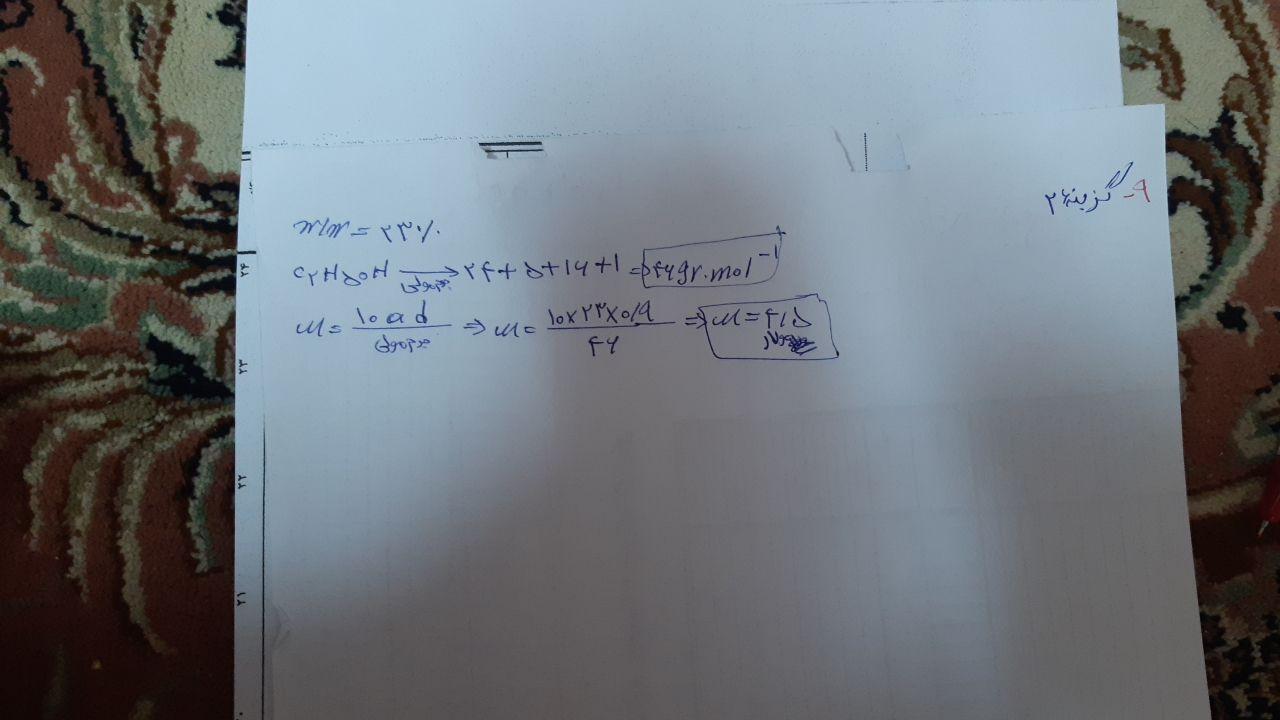 ۹- گزینه ۲
m/m = ۲۳٪
C۲H۵OH جرم مولی → ۲۴+۵+۱۶+۱ = ۴۶gr.mol⁻¹
M = ۱۰ad / جرم مولی ⇒ M = ۱۰×۲۳×۰/۹ / ۴۶ ⇒ M = ۴/۵ مولار
۲۴
۲۳
۲۲
۲۱